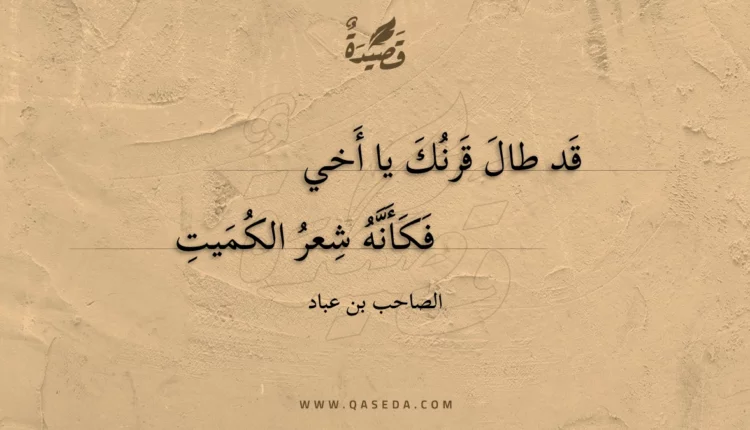 قَصيدَةٌ
قَد طالَ قَرنُكَ يا أَخي
فَكَأَنَّهُ شِعرُ الكُمَيتِ
الصاحب بن عباد
WWW.QASEDA.COM